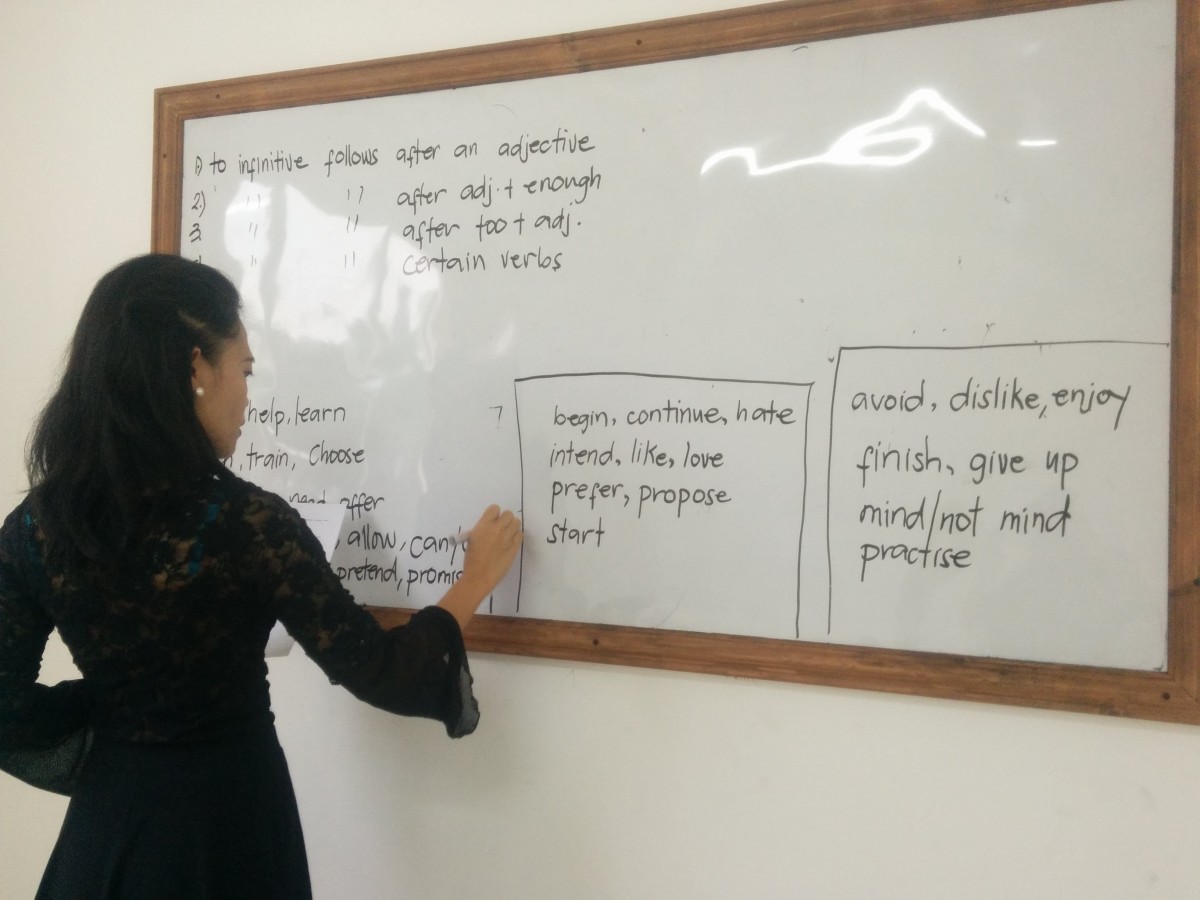 1) to infinitive follows after an adjective
2) " " after adj. + enough
3 " " after too + adj.
" " certain verbs
help, learn
train, Choose
need offer
allow,
pretend,
begin, continue, hate
intend, like, love
prefer, propose
start
avoid, dislike, enjoy
finish, give up
mind/not mind
practise